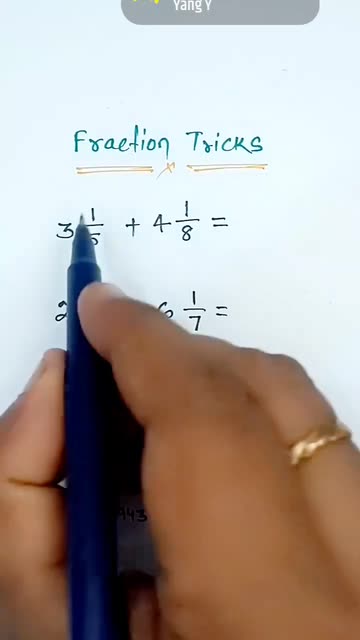 Yang Y
Fraction Tricks
3 1/5 + 4 1/8 =
2 6 1/7 =
943